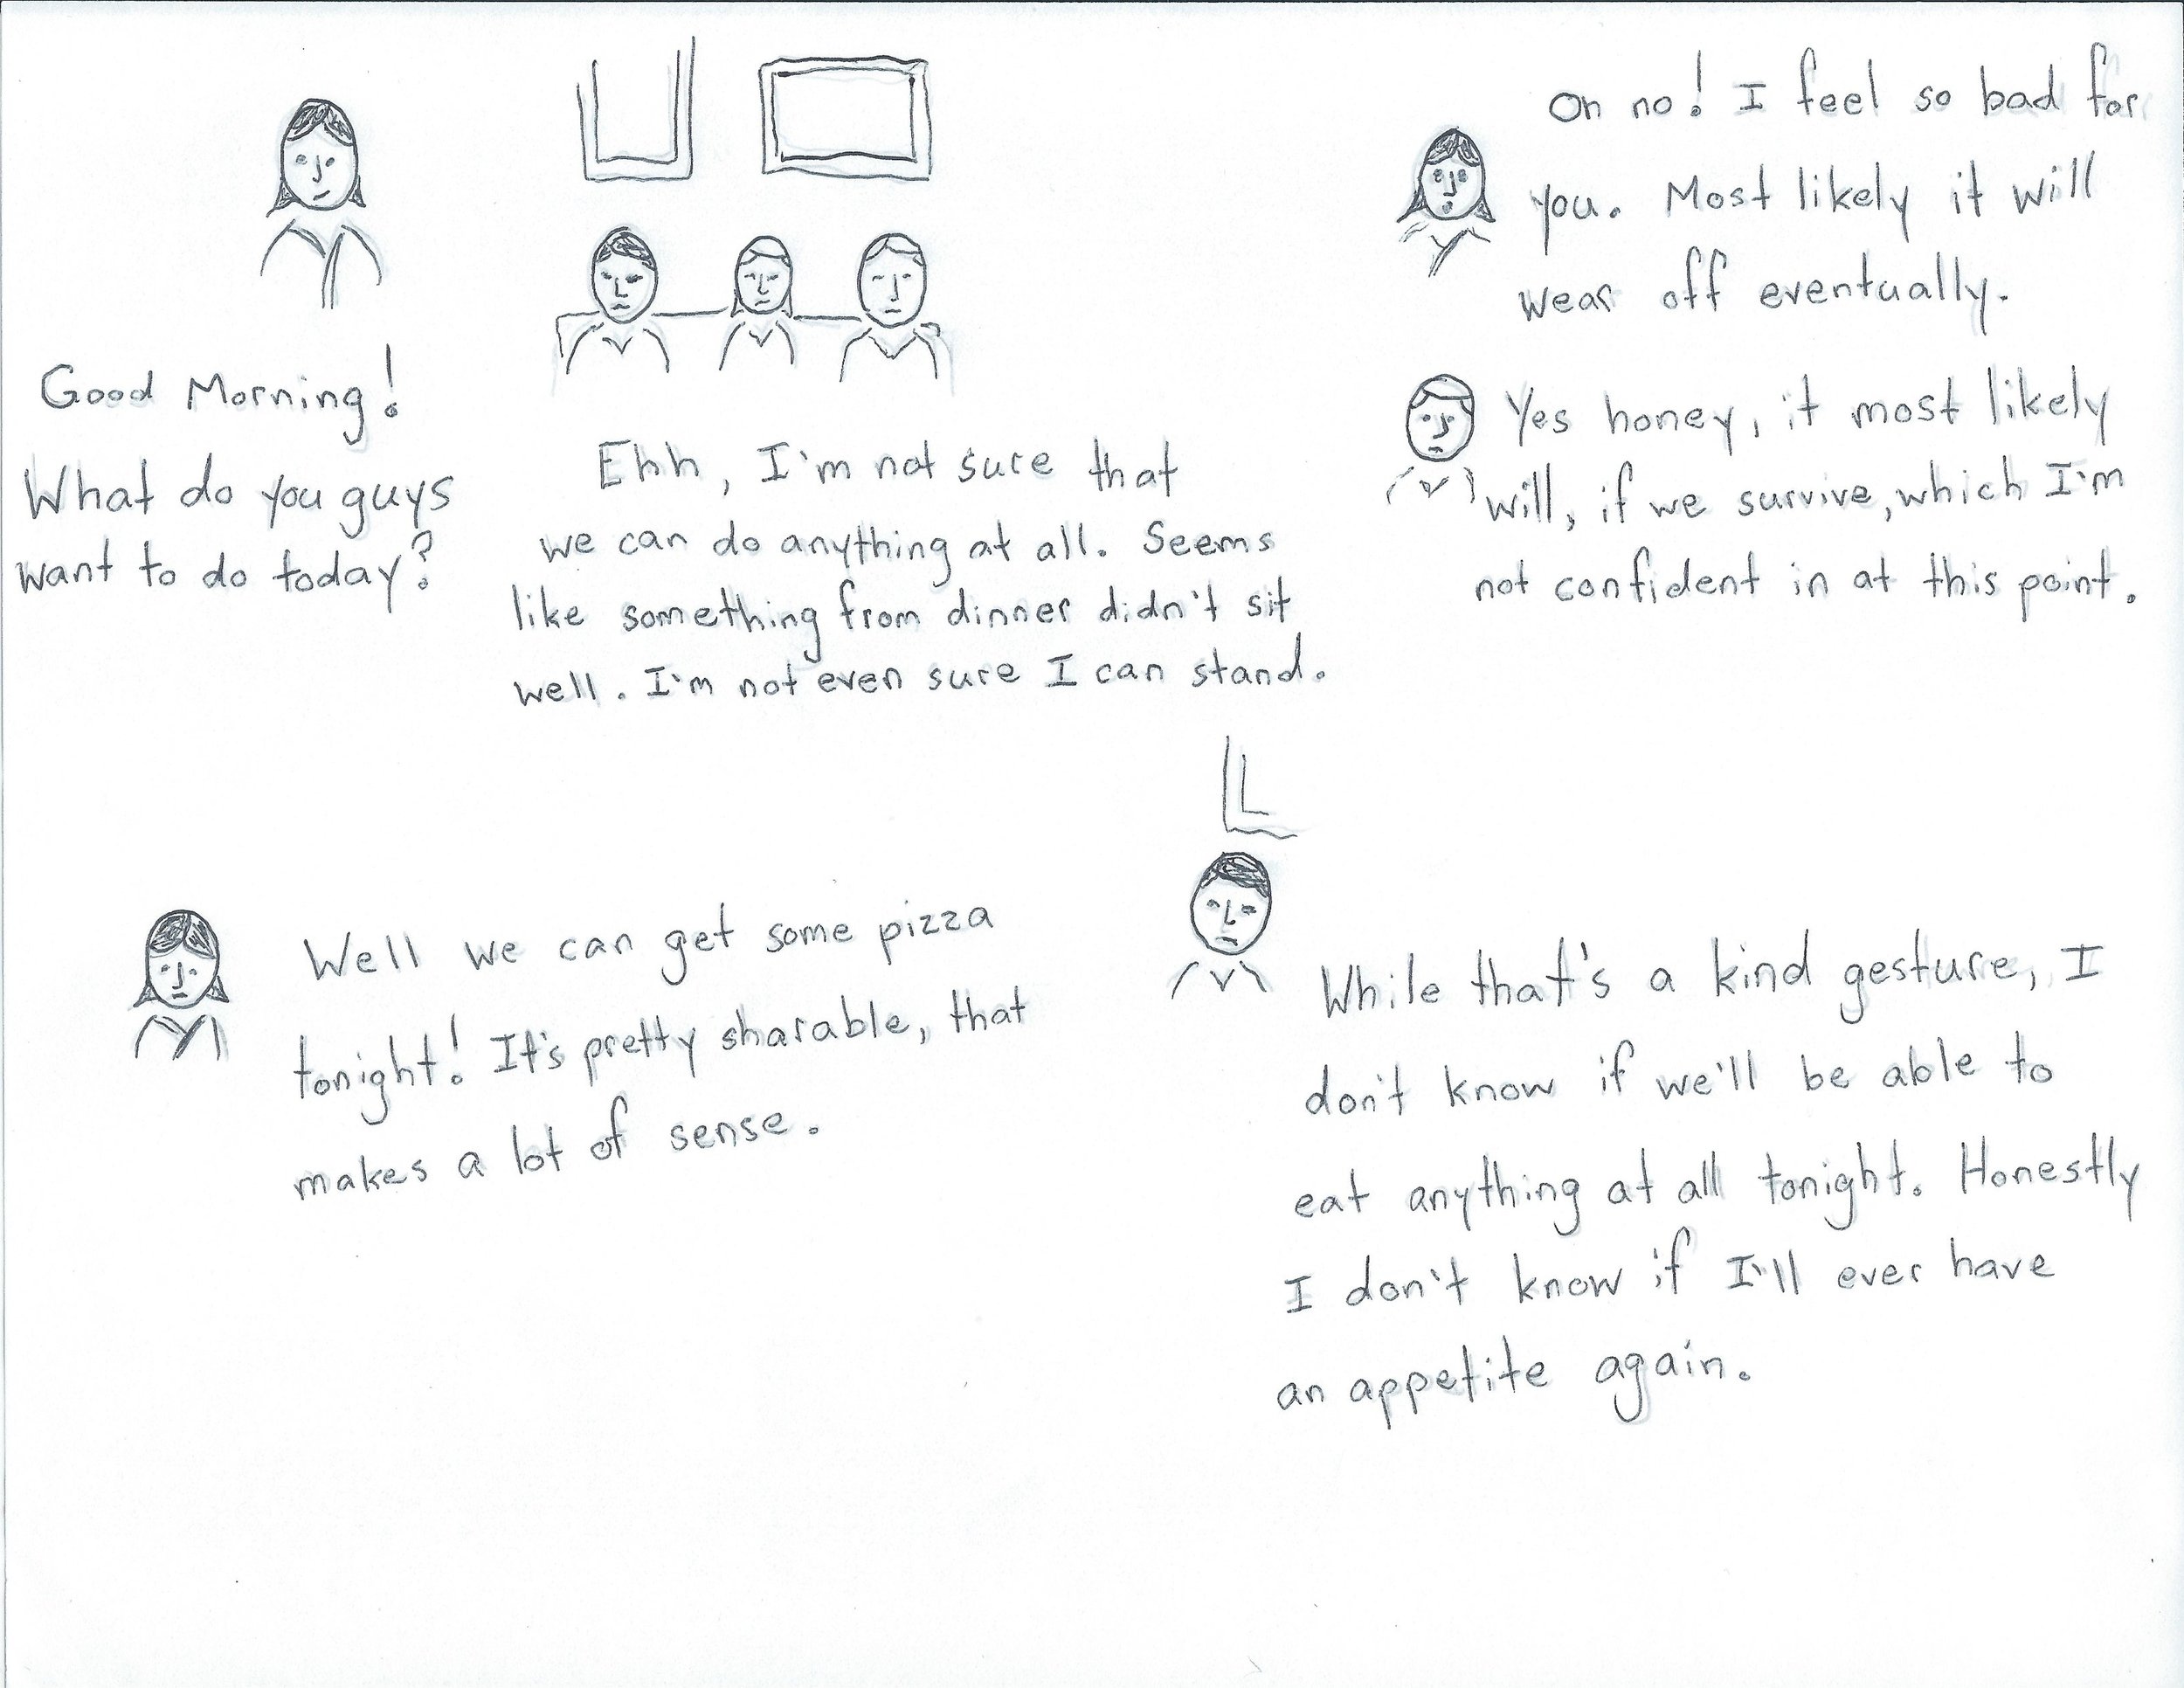 Good Morning!
What do you guys
want to do today?
Ehh, I'm not sure that
we can do anything at all. Seems
like something from dinner didn't sit
well. I'm not even sure I can stand.
Oh no! I feel so bad for
you. Most likely it will
wear off eventually.
Yes honey, it most likely
will, if we survive, which I'm
not confident in at this point.
Well we can get some pizza
tonight! It's pretty sharable, that
makes a lot of sense.
While that's a kind gesture, I
don't know if we'll be able to
eat anything at all tonight. Honestly
I don't know if I'll ever have
an appetite again.